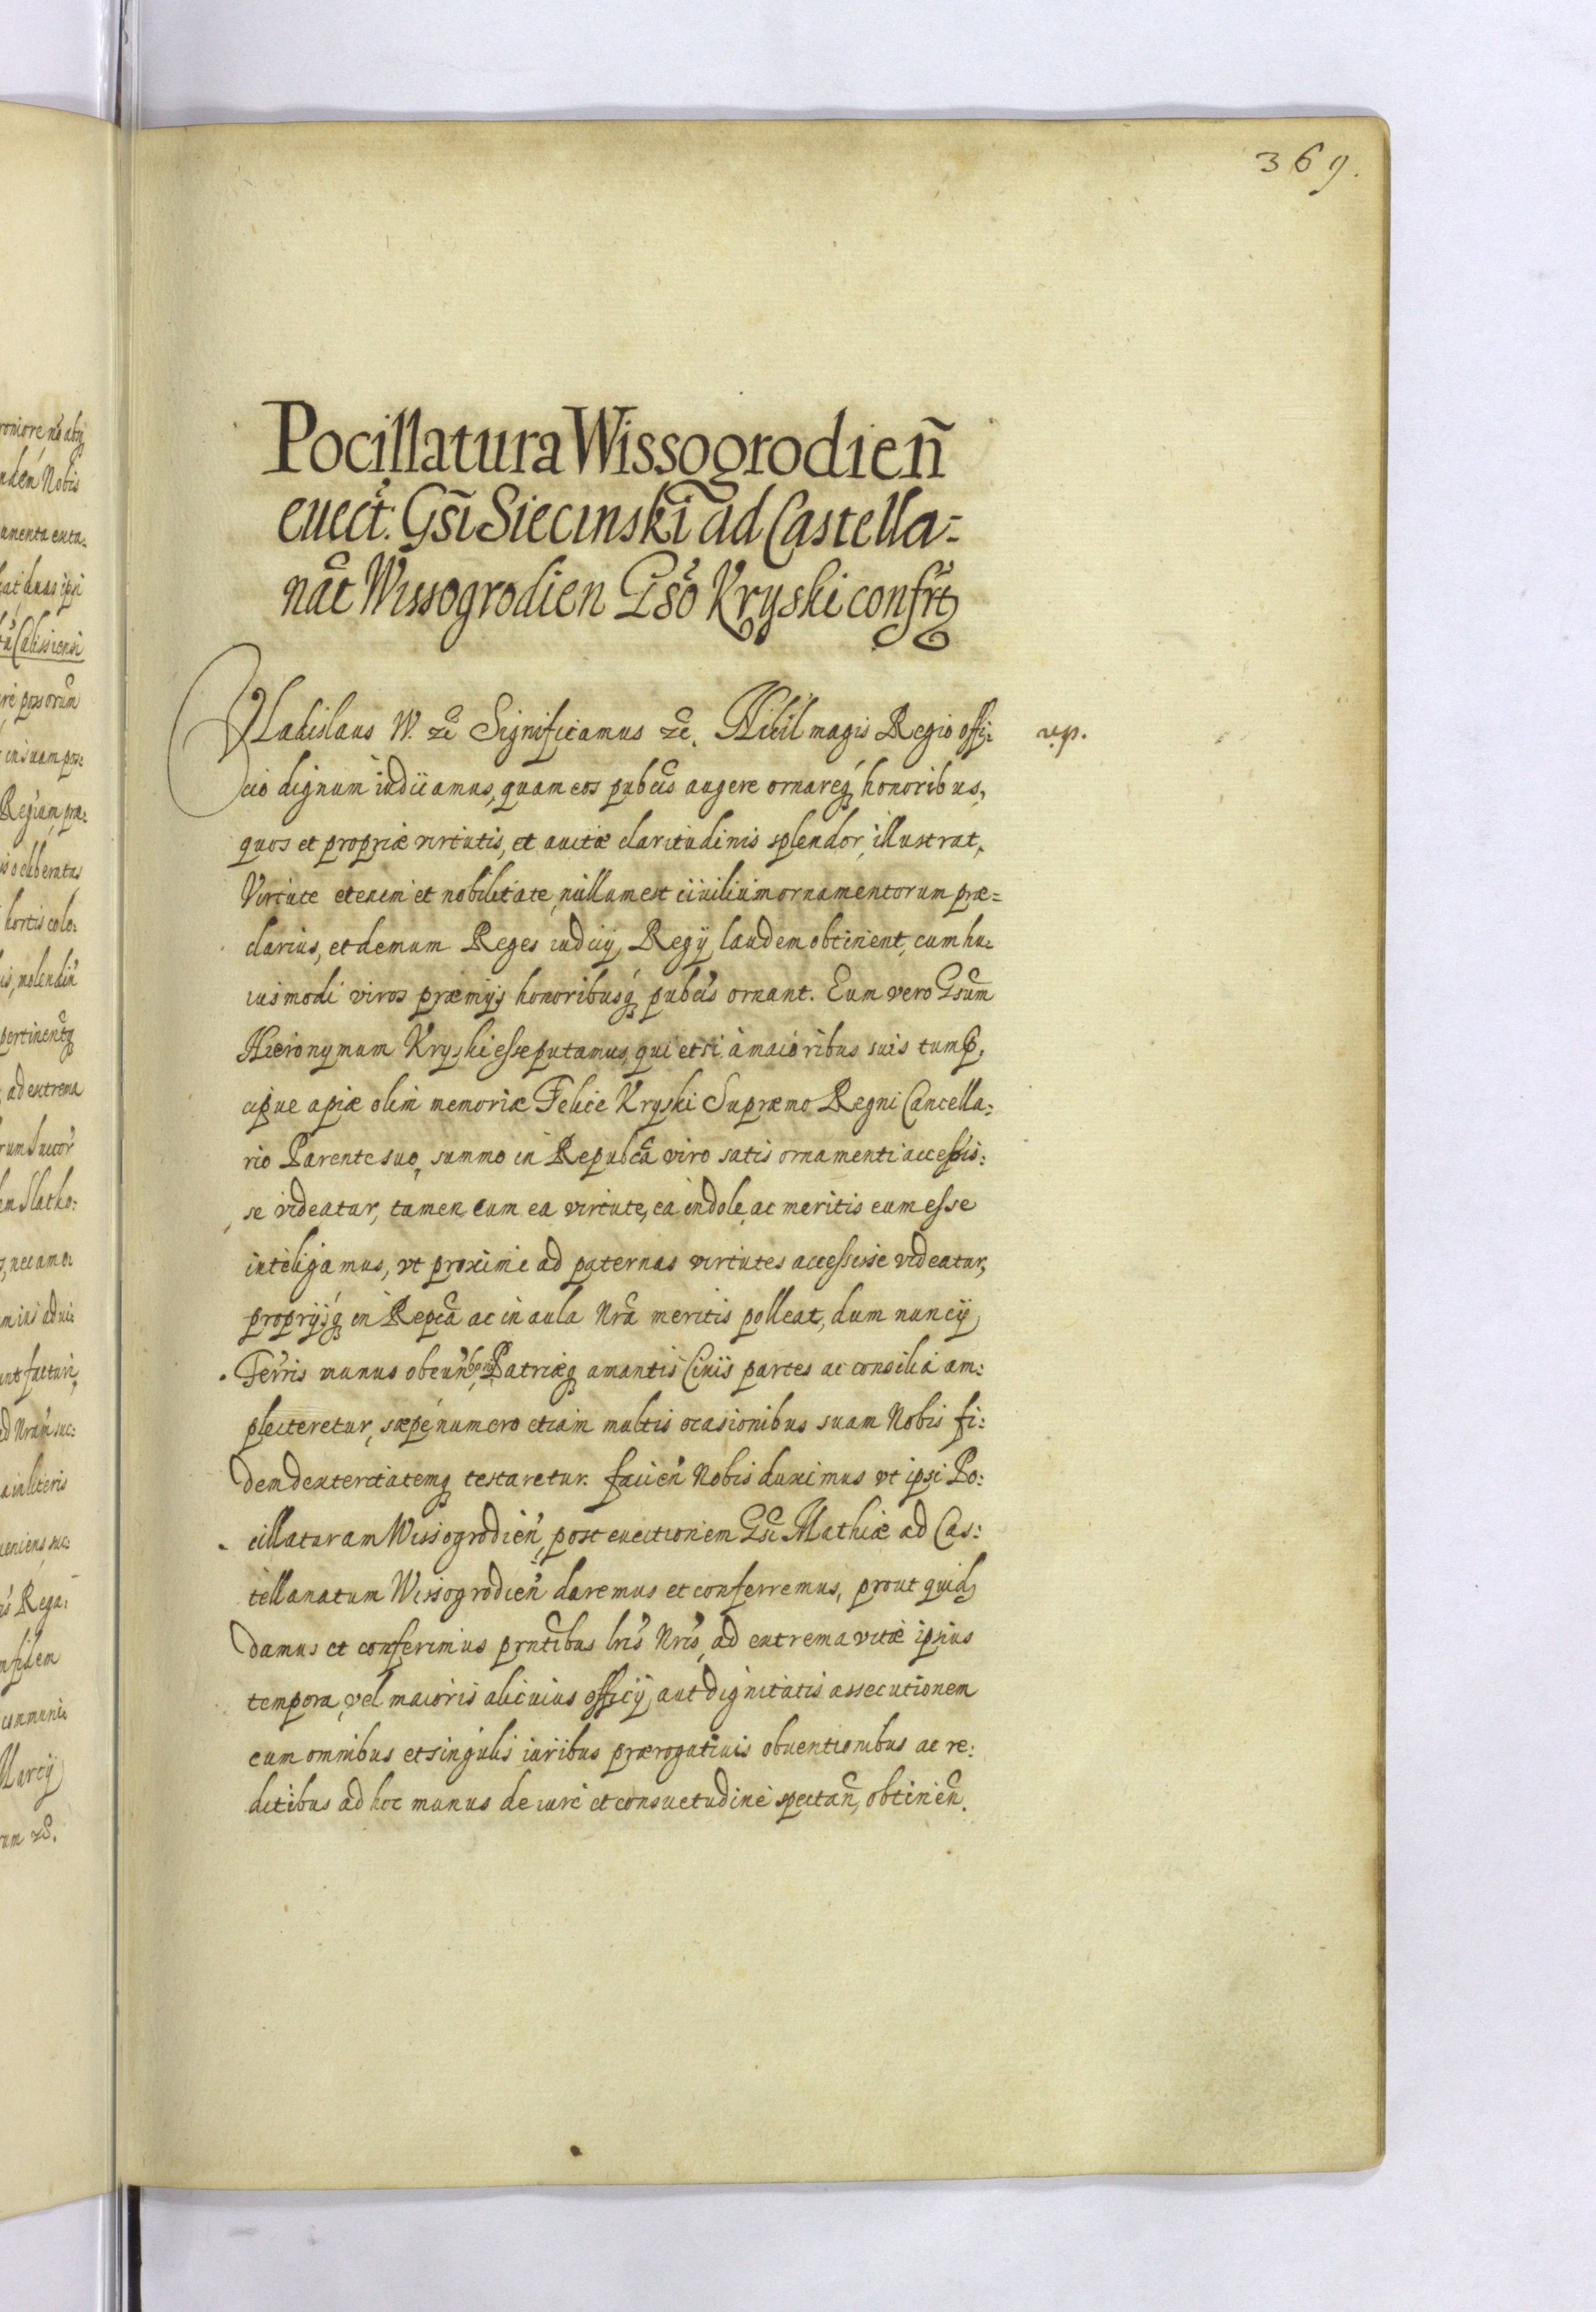 369.
Pocillatura Wissogrodień
euect. Gsi Siecinski ad Castella=
nat Wissogrodien Gso Kryski confrt
Vladislaus IV. etc Significamus etc. Nihil magis Regio offi: rep.
cio dignum iudicamus, quam eos pubcis augere ornareq honoribus,
quos et propriæ virtutis, et auitæ claritudinis splendor, illustrat,
Virtute etenim et nobilitate, nullum est ciuilium ornamentorum præ=
clarius, et demum Reges iudicij Regij laudem obtinent, cum hu=
iusmodi viros præmijs honoribusq pubcis ornant. Eum vero Gsum
Hieronymum Kryski esse putamus, qui etsi à maioribus suis tum p,
cipue a piæ olim memoriæ Felice Kryski Supræmo Regni Cancella:
rio Parente suo, summo in Repubca viro satis ornamenti accessis:
se videatur, tamen cum ea virtute, ea indole, ac meritis eum esse
inteligamus, vt proxime ad paternas virtutes accessisse videatur,
proprijsq in Repca ac in aula Nra meritis polleat, dum nuncij
Terris munus obeun, boni Patriæq amantis Ciuis partes ac consilia am:
plecteretur, sæpe numero etiam multis ocasionibus suam Nobis fi:
dem dexteritatemq testaretur. facien Nobis duximus vt ipsi Po:
cillaturam Wissogrodien, post euectionem Gsi Mathiæ ad Cas:
tellanatum Wissogrodien daremus et conferremus, prout quid
damus et conferimus prntibus lris Nris, ad extrema vitæ ipsius
tempora, vel maioris alicuius officij aut dignitatis assecutionem
cum omnibus et singulis iuribus prærogatiuis obuentionibus ac re:
ditibus ad hoc munus de iure et consuetudine spectan, obtinen.